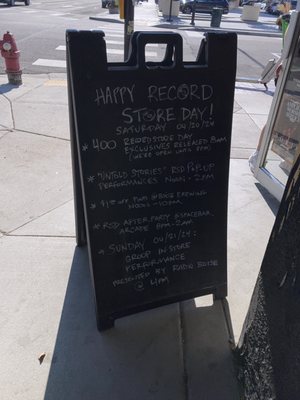 HAPPY RECORD
STORE DAY!
SATURDAY 04/20/24
* 400 RECORD STORE DAY
EXCLUSIVES RELEASED 8AM
(WE'RE OPEN UNTIL 8PM)
* "UNTOLD STORIES" RSD POP-UP
PERFORMANCES NOON - 2PM
* $1 OFF @ BREWING
NOON - 10PM
* RSD AFTER PARTY @ SPACEBAR
ARCADE 8PM - 2AM
* SUNDAY 04/21/24:
GROUP IN STORE
PERFORMANCE
PRESENTED BY RADIO BOISE
@ 4PM